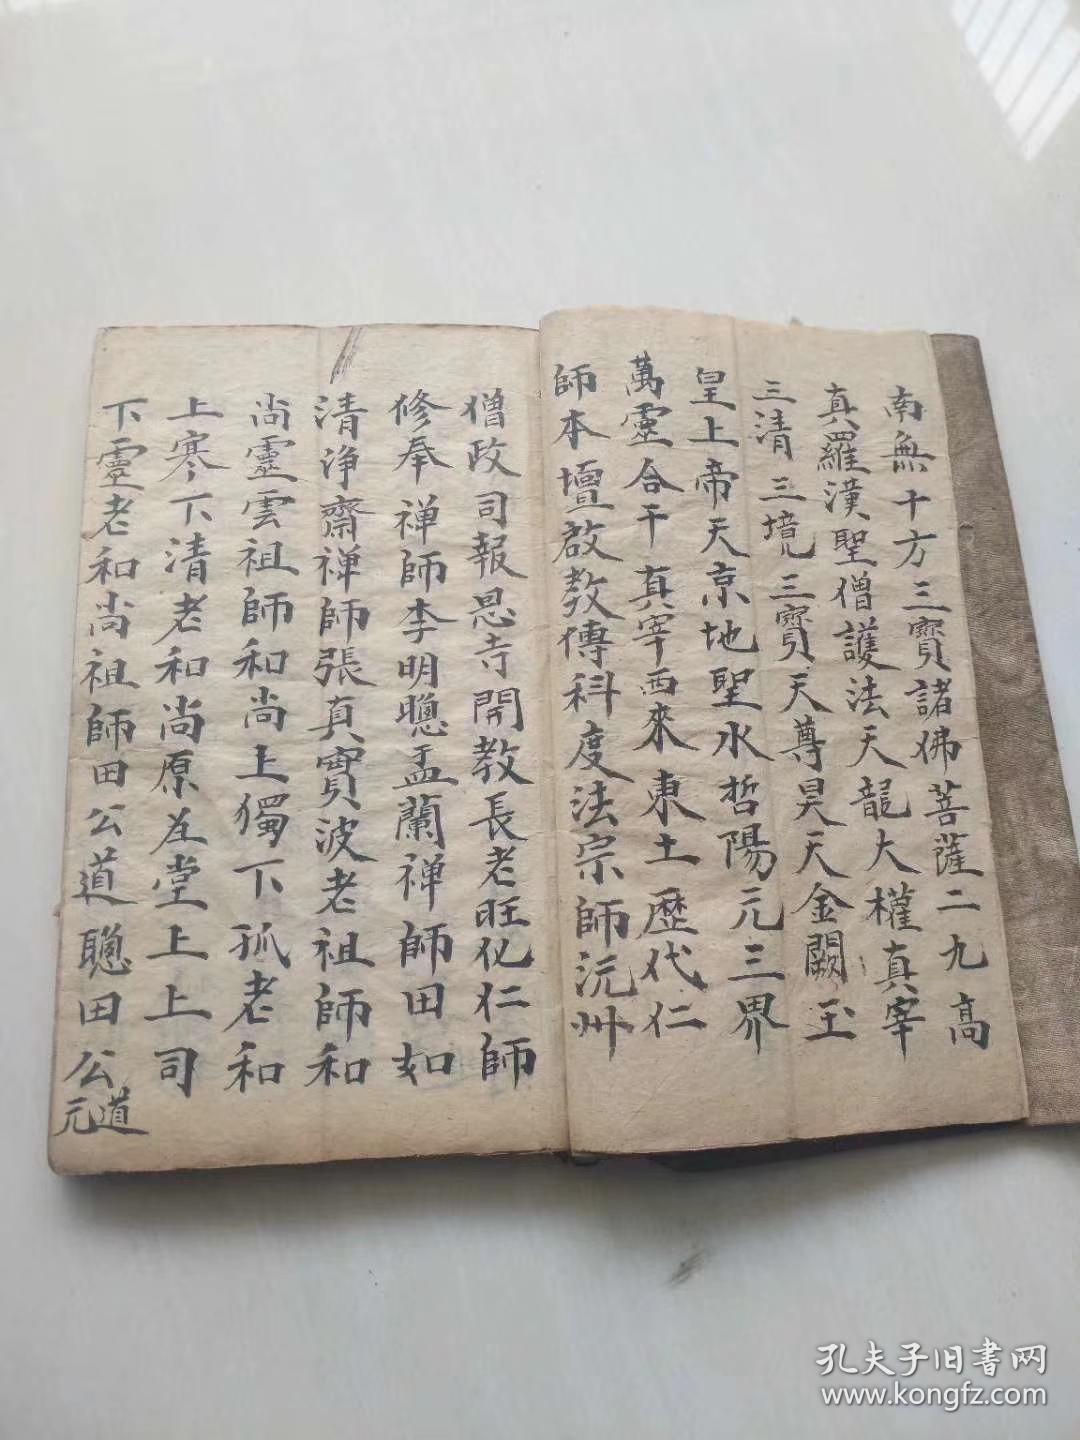 南無十方三寶諸佛菩薩二九高
真羅漢聖僧護法天龍大權真宰
三清三境三寶天尊昊天金闕玉
皇上帝天京地聖水哲陽元三界
萬靈合干真宰西來東土歷代仁
師本壇啟教傳科度法宗師沅州
僧政司報恩寺開教長老旺化仁師
修奉禅師李明聰盂蘭禅師田如
清净齋禅師張真實波老祖師和
尚靈雲祖師和尚上獨下孤老和
上寒下清老和尚原在堂上上司
下靈老和尚祖師田公道聰田公道元
孔夫子旧書网
www.kongfz.com